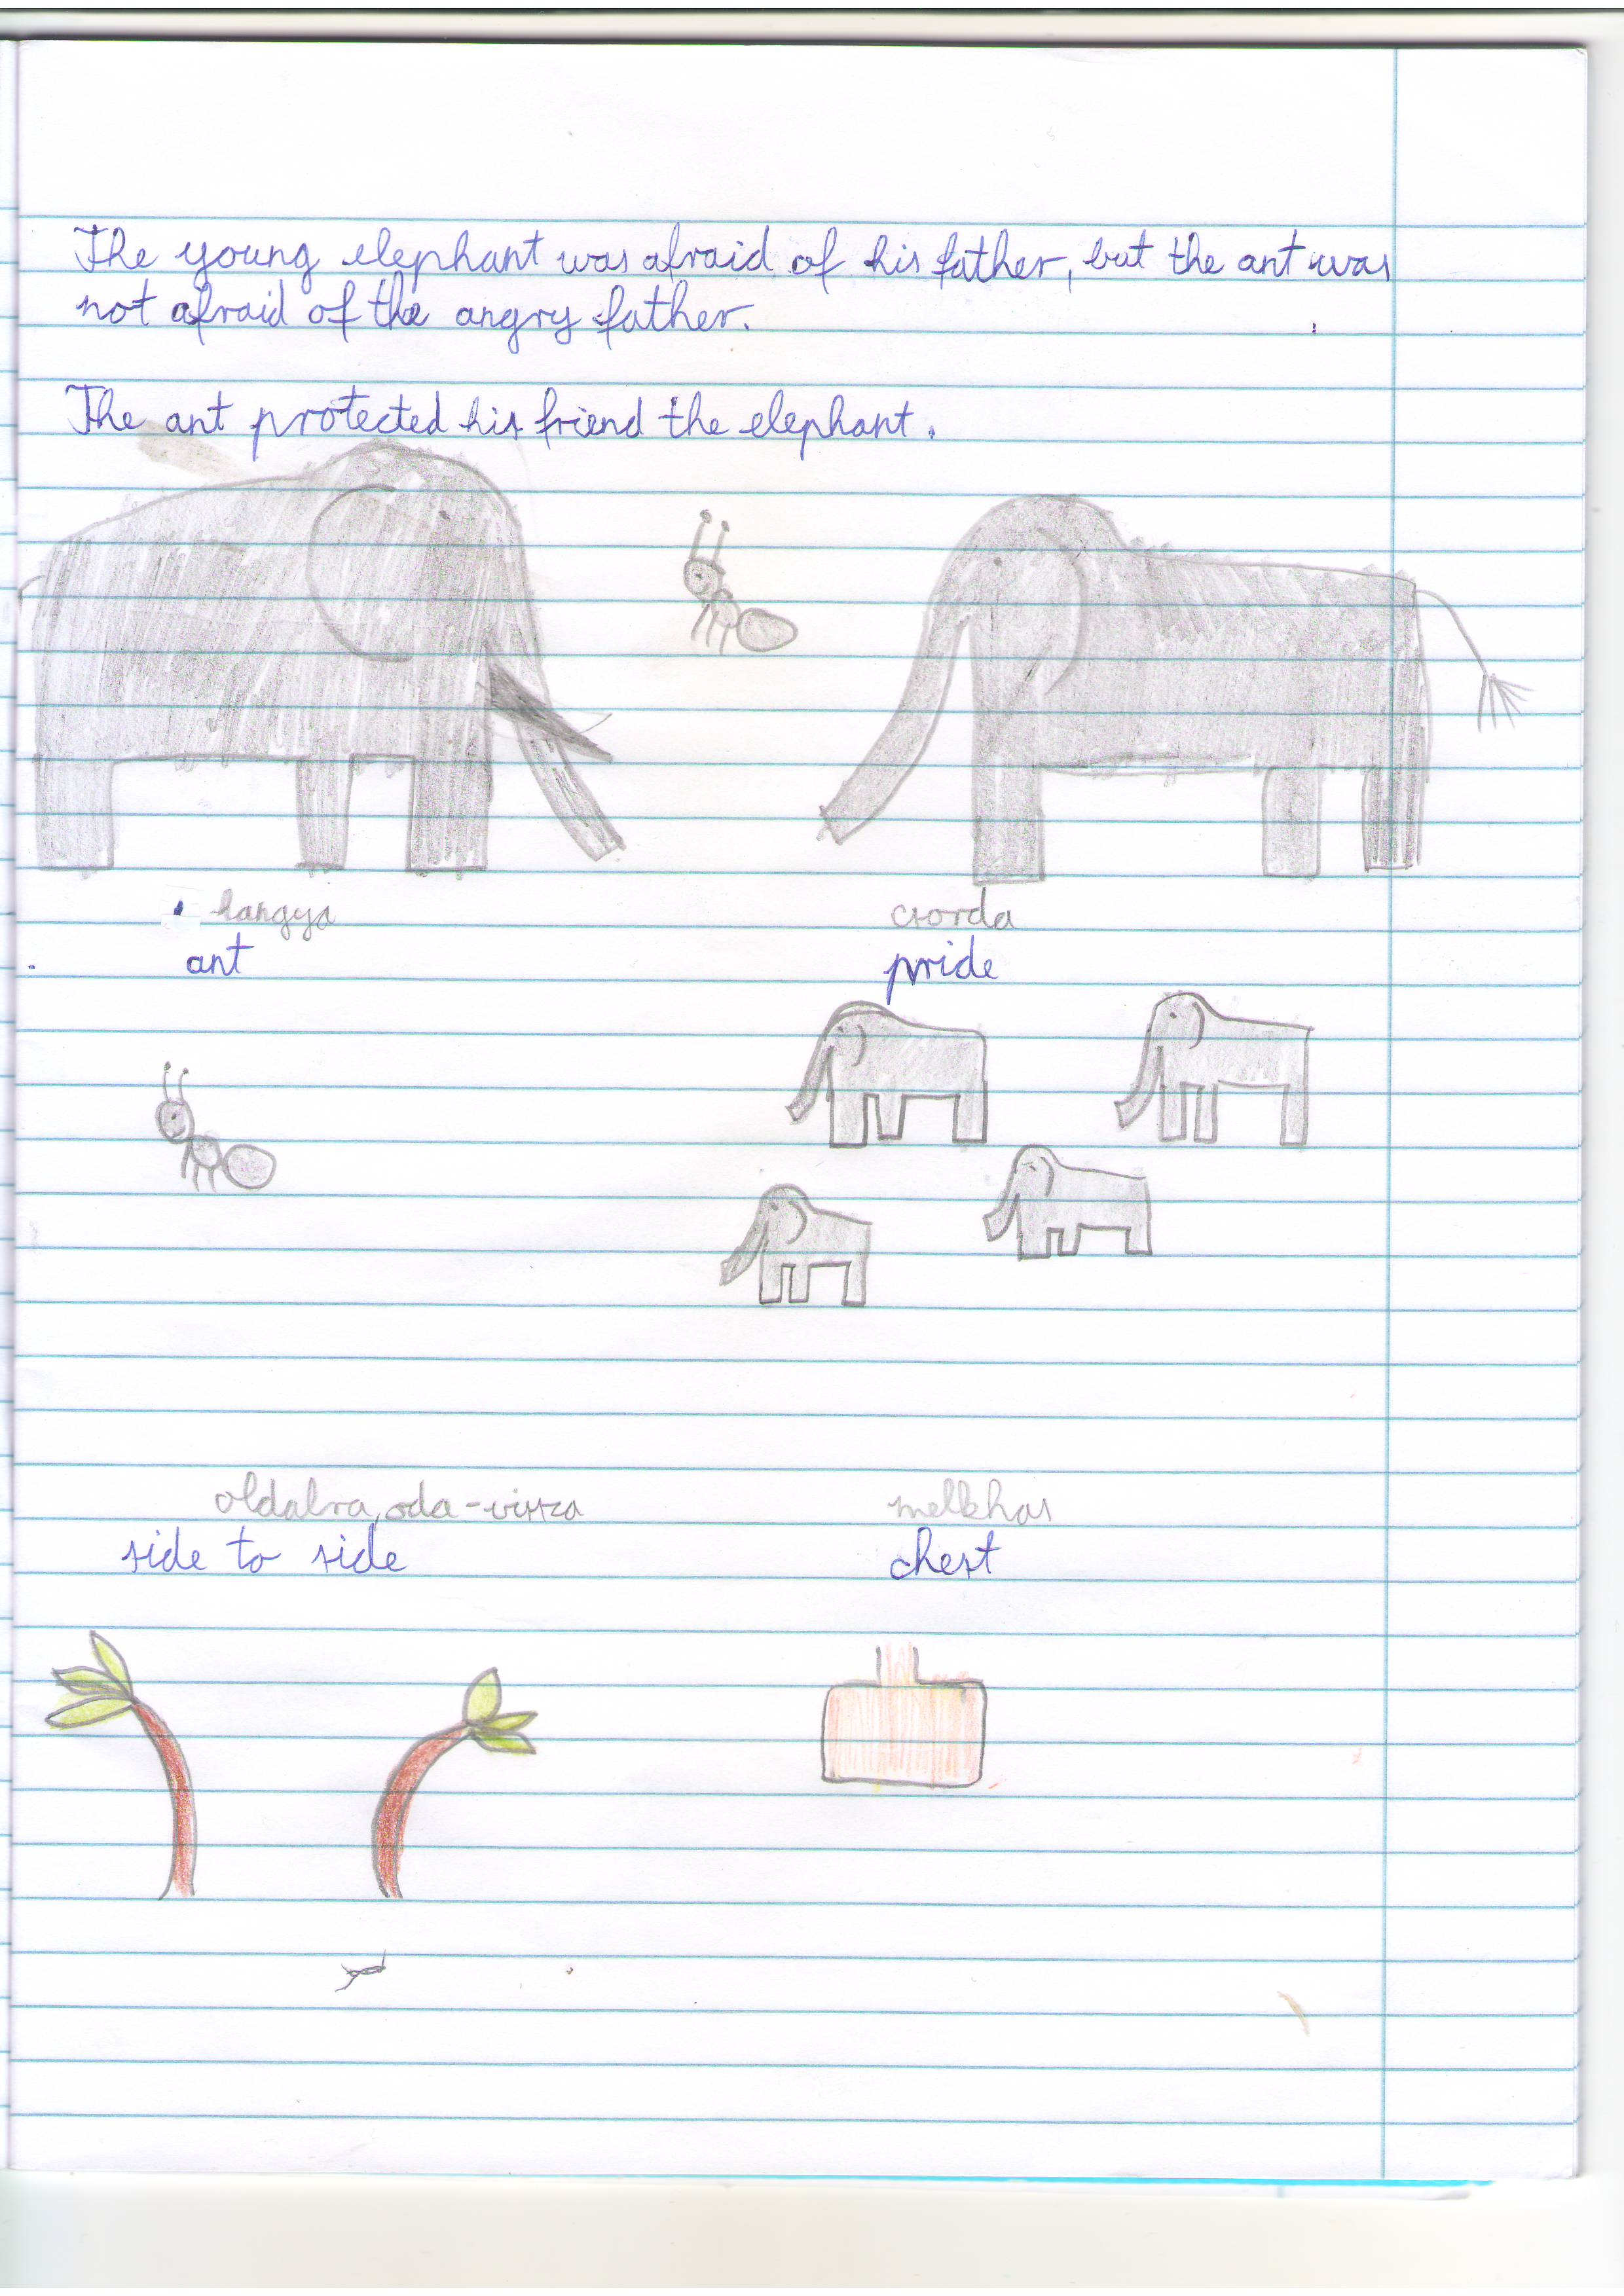 The young elephant was afraid of his father, but the ant was
not afraid of the angry father.
The ant protected his friend the elephant.
hangya
ant
csorda
pride
oldalra, oda-vissza
side to side
mellkas
chest